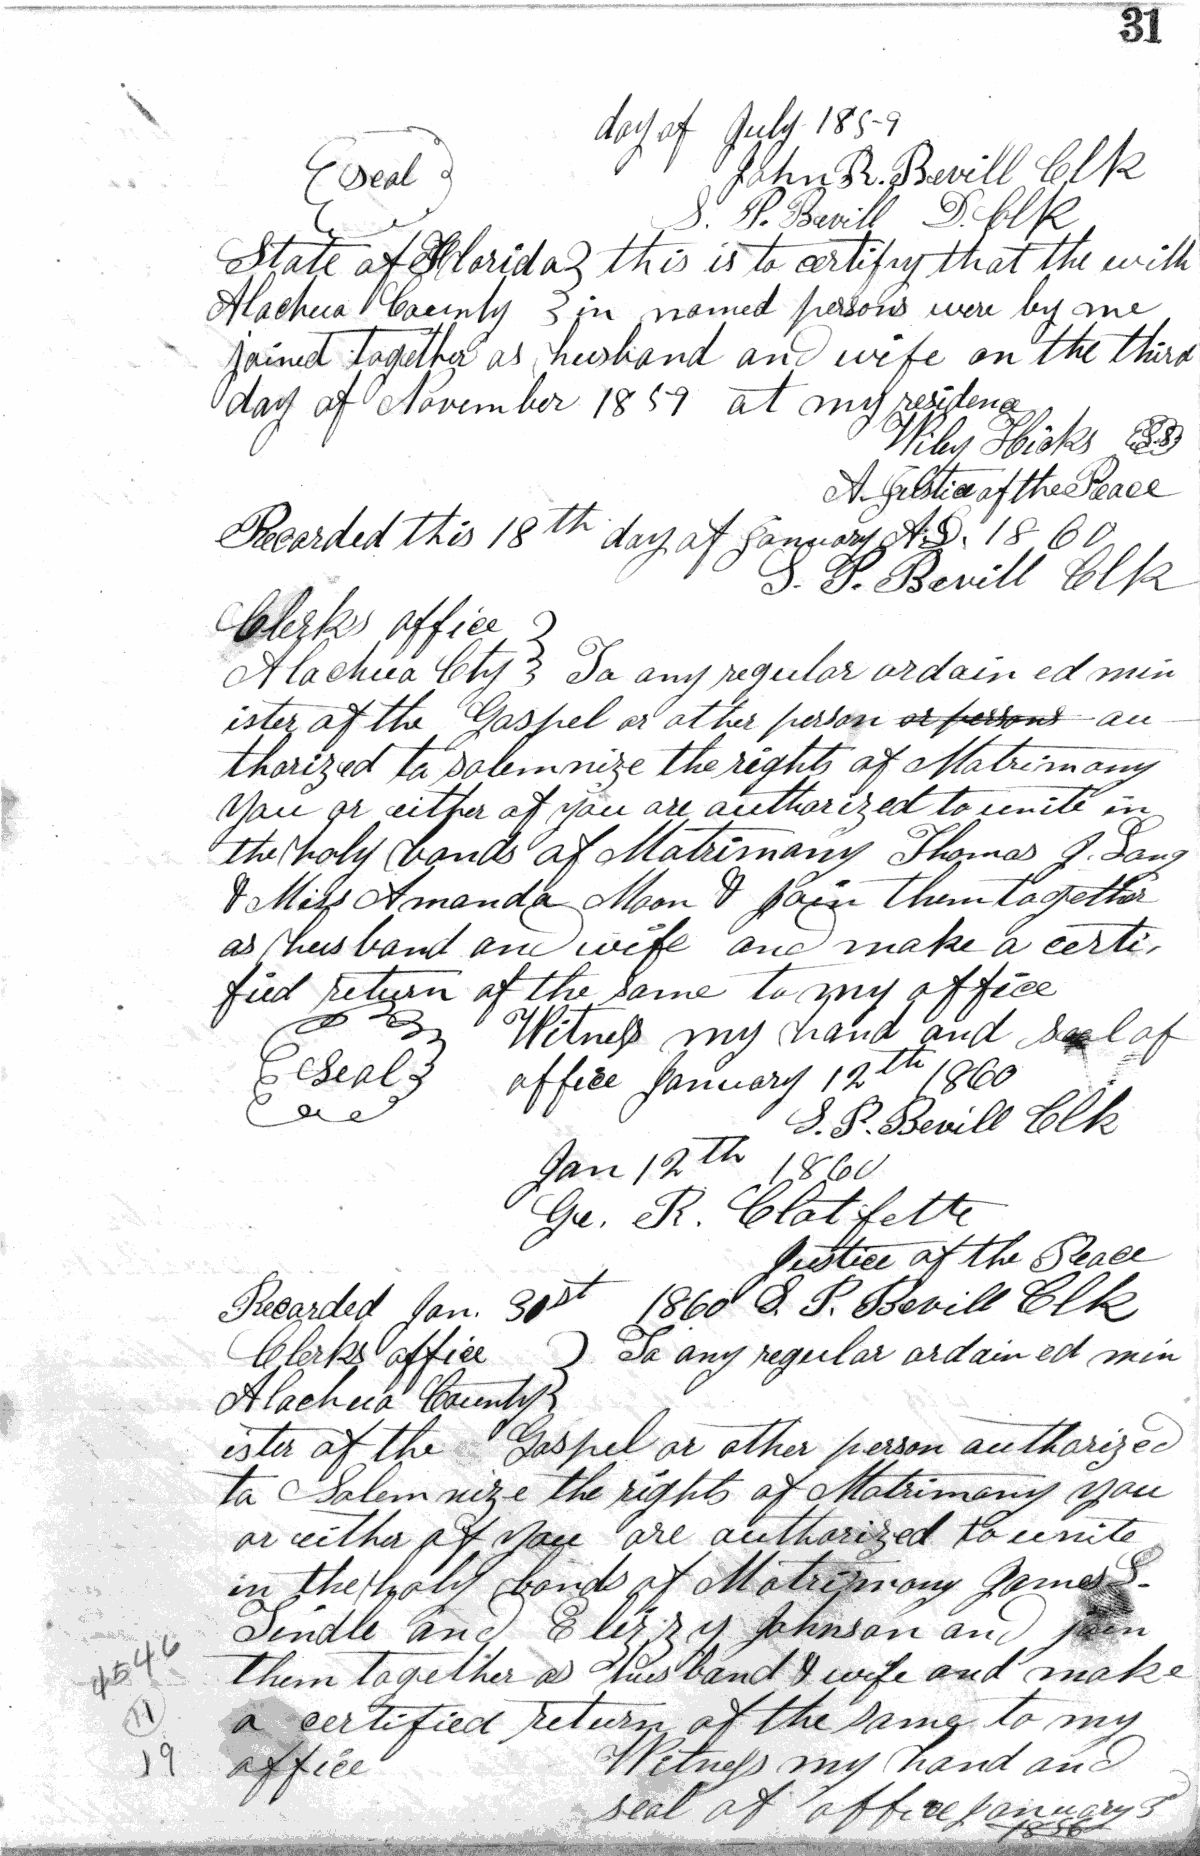 31
day of July 1859
Seal
John R. Bevill Clk
S. P. Bevill D. Clk
State of Florida } this is to certify that the with
Alachua County } in named persons were by me
joined together as husband and wife on the third
day of November 1859 at my residence
Wiley Hicks L.S.
A Justice of the Peace
Recorded this 18th day of January A.D. 1860
S. P. Bevill Clk
Clerks office }
Alachua Cty } To any regular ordain ed min
ister of the Gospel or other person or persons au
thorized to solemnize the rights of Matrimony
You or either of you are authorized to unite in
the holy bonds of Matrimony Thomas J. Lang
& Miss Amanda Moon & join them together
as husband and wife and make a certi-
fied return of the same to my office
Witness my hand and seal of
Seal
office January 12th 1860
S. P. Bevill Clk
Jan 12th 1860
Ge. R. Clatfette
Justice of the Peace
Recorded Jan. 31st 1860 S. P. Bevill Clk
Clerks office } To any regular ordain ed min
Alachua County }
ister of the Gospel or other person authorized
to Solemnize the rights of Matrimony you
or either of you are authorized to unite
in the holy bonds of Matrimony James S.
Tindle and Elizzy Johnson and join
them together as husband & wife and make
4546
11
a certified return of the same to my
19
office Witness my hand and
seal of office January 5
1856